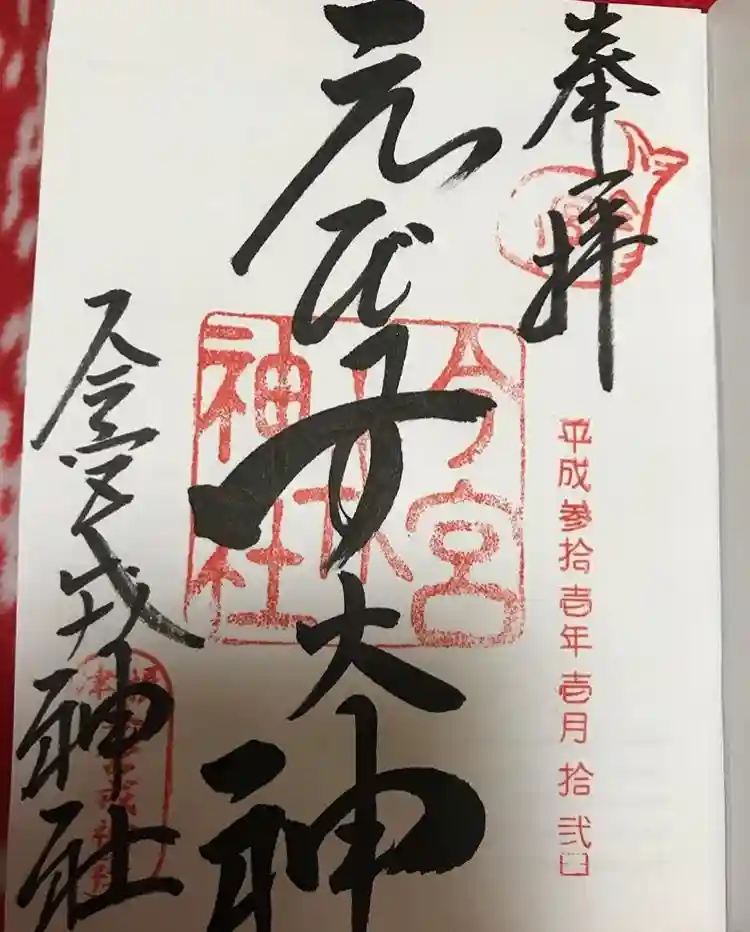 奉拝
平成参拾壱年壱月拾弐日
えびす大神
今宮戎神社
今宮戎神社